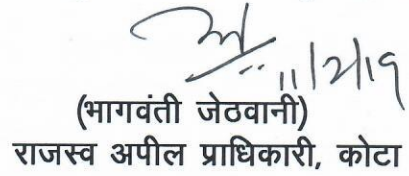 11/2/19
(भागवंती जेठवानी)
राजस्व अपील प्राधिकारी, कोटा